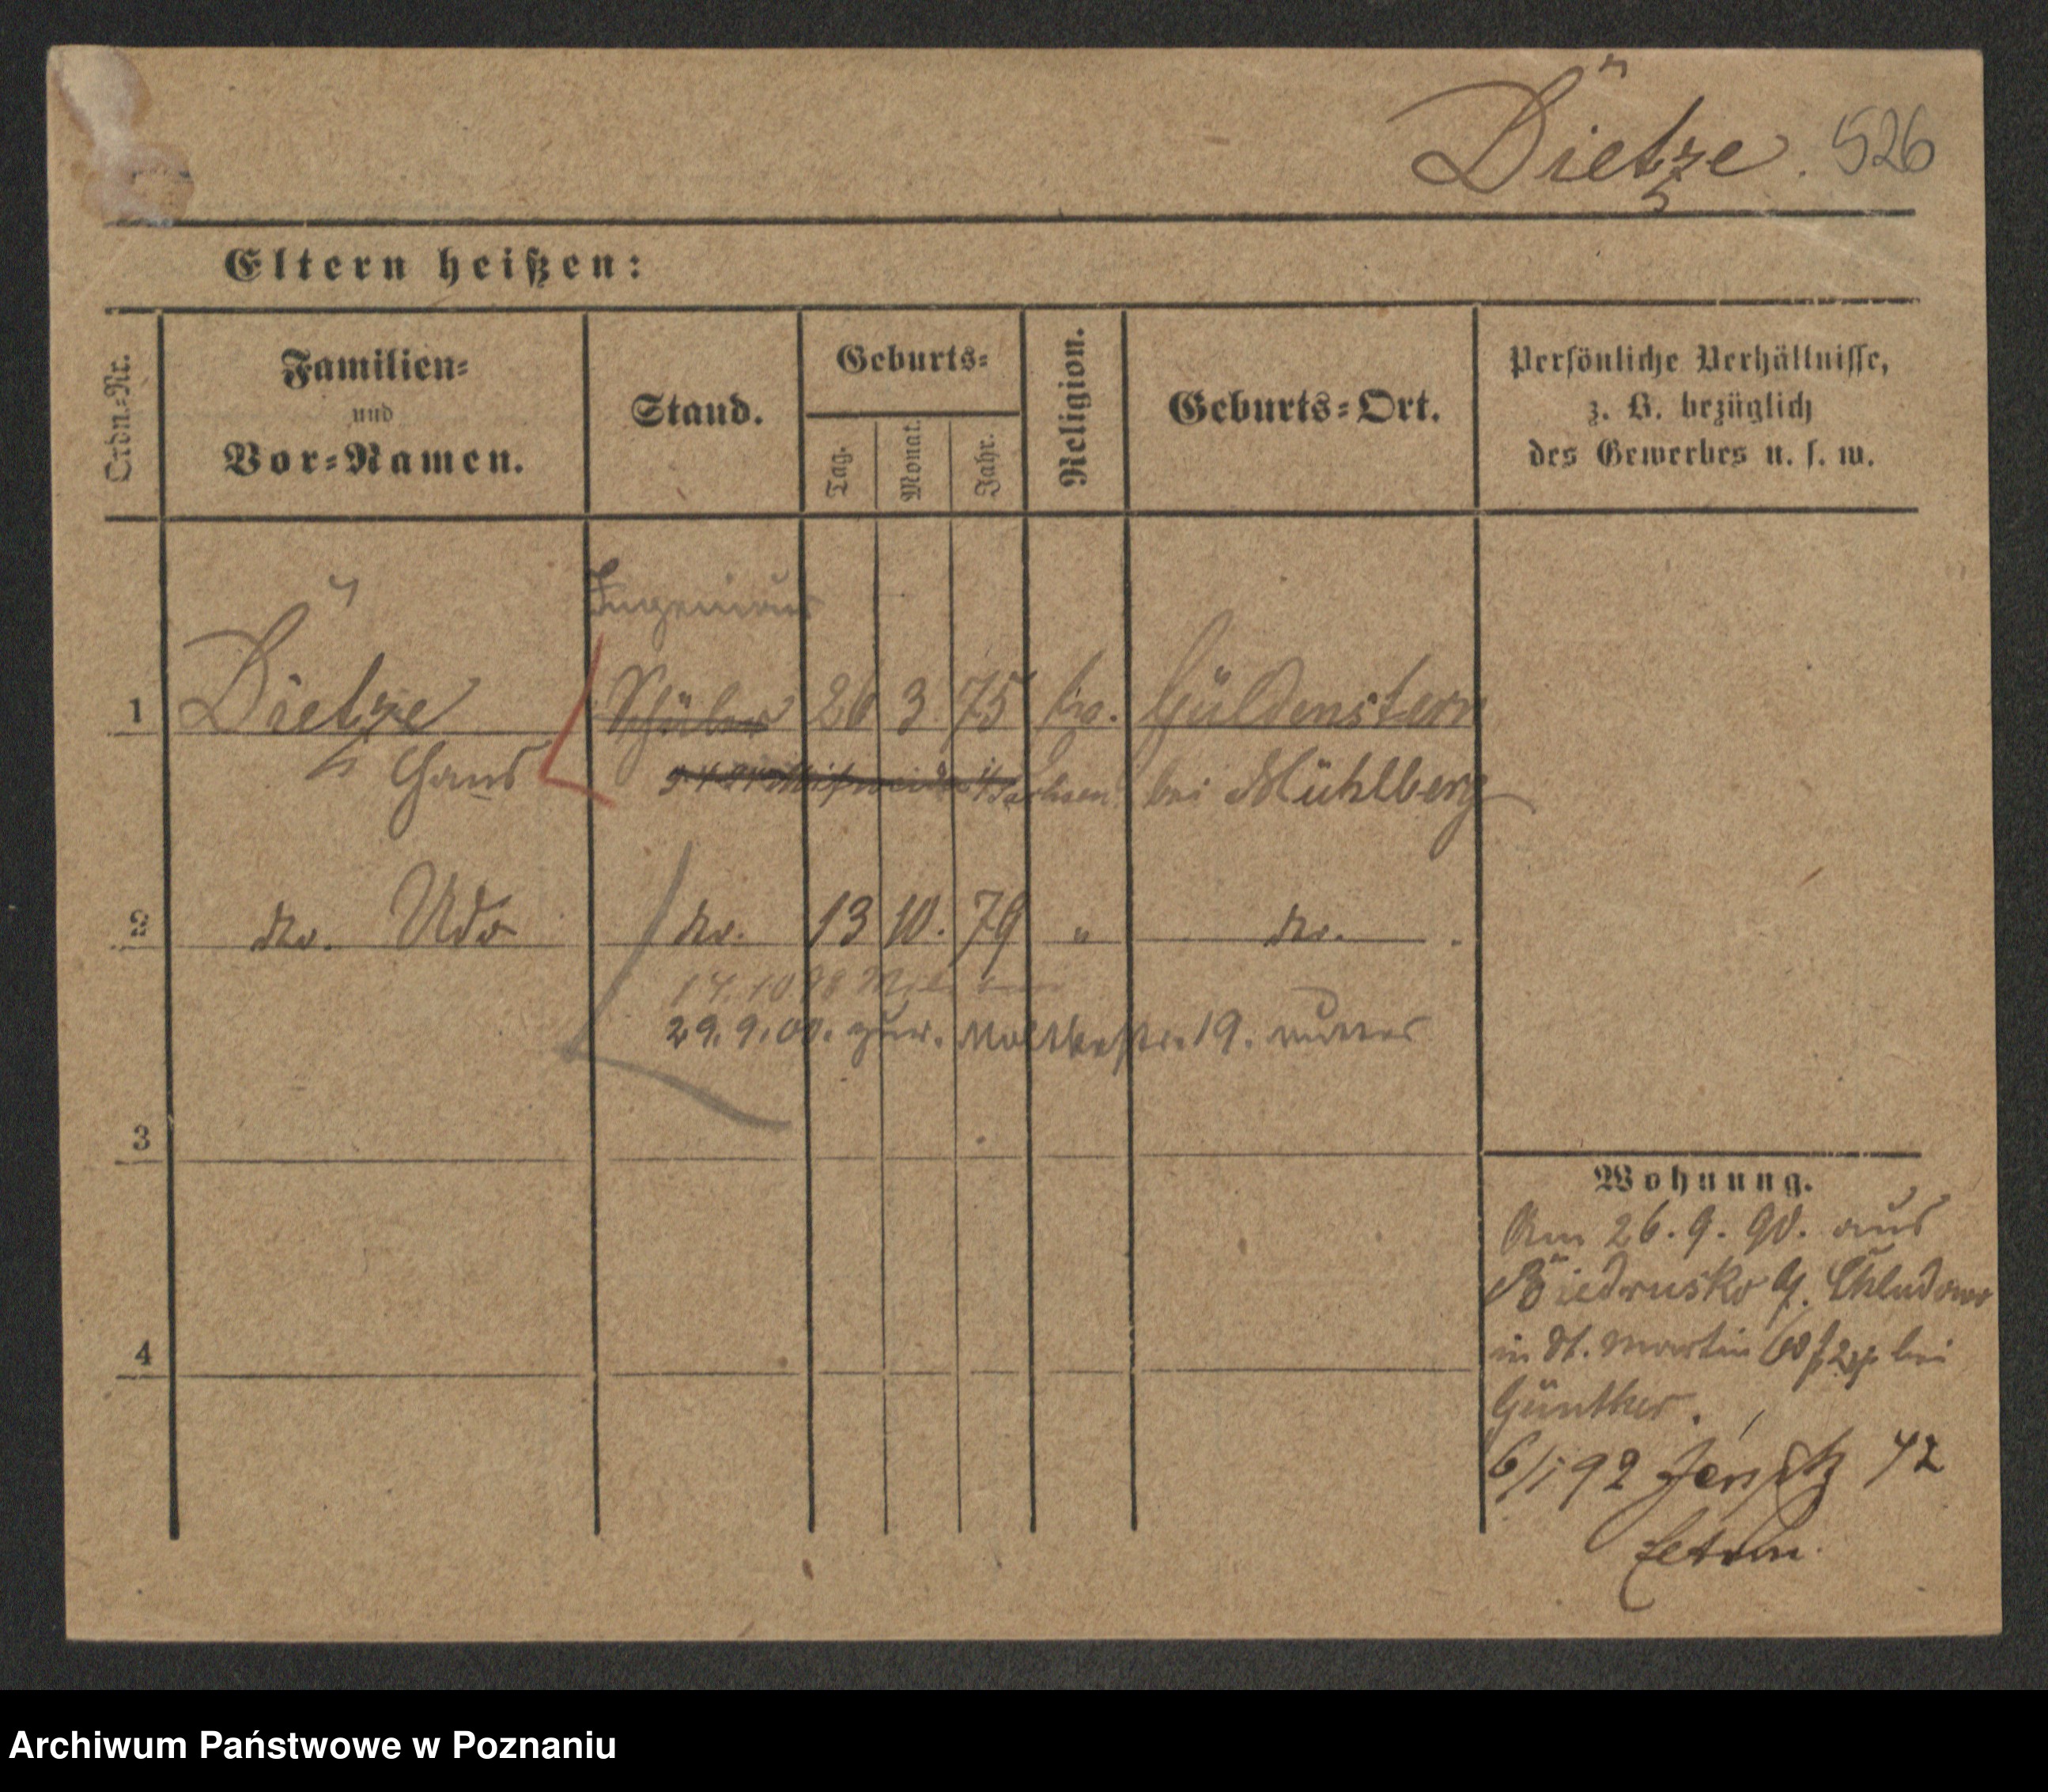 Dietze. 526
Eltern heißen:
Ordn.-Nr.
Familien-
und
Vor-Namen.
Stand.
Geburts-
Tag.
Monat.
Jahr.
Religion.
Geburts-Ort.
Persönliche Verhältnisse,
z. B. bezüglich
des Gewerbes u. s. w.
Ingenieur
1 Dietze Schüler 26 3. 75 ev. Güldenstern
Hans Mitweida i/Sachsen bei Mühlberg
2 do. Udo do. 13 10. 79 " do.
14. 10 98
29. 9. 00. zur. Moltkestr. 19. Mutter
3
4
Wohnung.
Am 26. 9. 90. aus
Biedrusko Chludowo
in St. Martin bei
Günther.
6/1 92 Jersitz 42
Eltern.
Archiwum Państwowe w Poznaniu